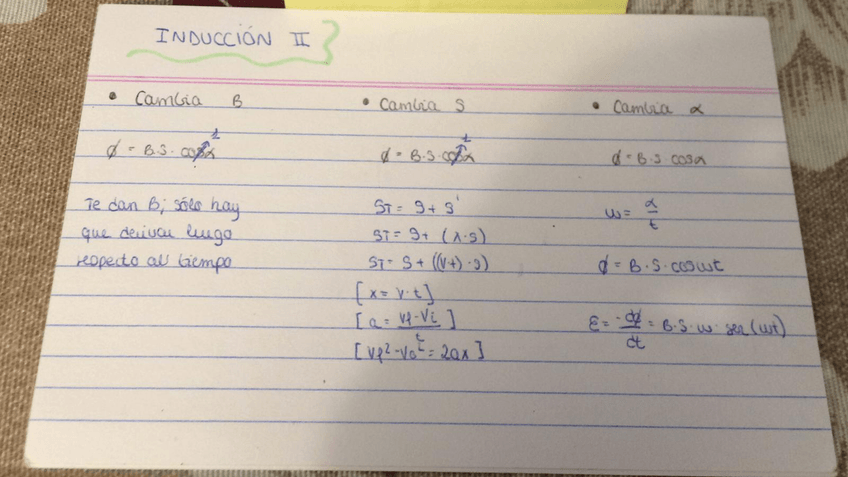 INDUCCIÓN II
• Cambia B
ϕ = B·S·cosα 1
Te dan B; sólo hay
que derivar luego
respecto al tiempo
• Cambia S
ϕ = B·S·cosα 1
ST = S + S'
ST = S + (x·s)
ST = S + ((v·t)·s)
[x = v·t]
[a = (Vf - Vi)/t]
[Vf² - Vo² = 2ax]
• Cambia α
ϕ = B·S·cosα
ω = α/t
ϕ = B·S·cosωt
ε = -dϕ/dt = B·S·ω·sen(ωt)